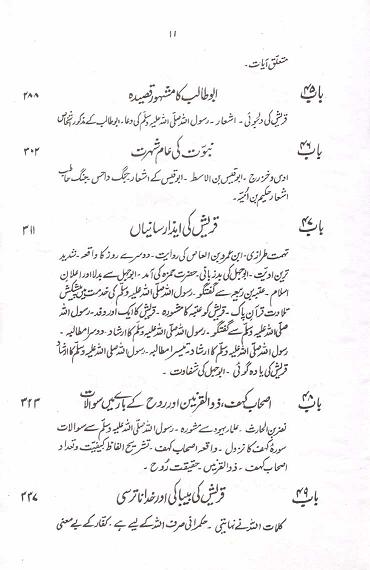 ۱۱
متعلق آیات۔
باب ۴۵ ابوطالب کا مشہور قصیدہ ۲۸۸
قریش کی دلجوئی ۔ اشعار ۔ رسول اللہ صلی اللہ علیہ وسلم کی دعا۔ ابوطالب کے مذکور اشخاص
باب ۴۶ نبوت کی عام شہرت ۳۰۲
اوس و خزرج ۔ ابوقیس بن الاسلت ۔ ابوقیس کے اشعار جنگ داحس ۔ جنگ حاطب
اشعار حکیم بن امیہ۔
باب ۴۷ قریش کی ایذا رسانیاں ۳۱۱
تہمت طرازی۔ ابن عمرو بن العاص کی روایت ۔ دوسرے روز کا واقعہ۔ شدید
ترین اذیت ۔ ابوجہل کی بدزبانی۔ حضرت حمزہ کی آمد۔ ابوجہل سے بدلا اور اعلان
اسلام ۔ عتبہ بن ربیعہ سے گفتگو ۔ رسول اللہ صلی اللہ علیہ وسلم کی خدمت میں پیشکش
تلاوت قرآن پاک ۔ قریش کو عتبہ کا مشورہ ۔ قریش کا ایک اور وفد۔ رسول اللہ
صلی اللہ علیہ وسلم سے گفتگو ۔ رسول اللہ صلی اللہ علیہ وسلم کا ارشاد۔ دوسرا مطالبہ ۔
رسول اللہ صلی اللہ علیہ وسلم کا ارشاد۔ تیسرا مطالبہ ۔ رسول اللہ صلی اللہ علیہ وسلم کا ارشاد
قریش کی یاوہ گوئی ۔ ابوجہل کی شقاوت ۔
باب ۴۸ اصحاب کہف، ذوالقرنین اور روح کے بارے میں سوالات ۳۲۳
نضر بن الحارث ۔ علماء یہود سے مشورہ ۔ رسول اللہ صلی اللہ علیہ وسلم سے سوالات
سورۂ کہف کا نزول ۔ واقعہ اصحاب کہف ۔ تشریح الفاظ کیفیت و تعداد
اصحاب کہف ۔ ذوالقرنین حقیقت روح ۔
باب ۴۹ قریش کی بیباکی اور خدا ناترسی ۳۳۷
کلمات اللہ بے نہایتی ۔ حکمرانی صرف اللہ کے لیے ہے ۔ کفار کے بے معنی